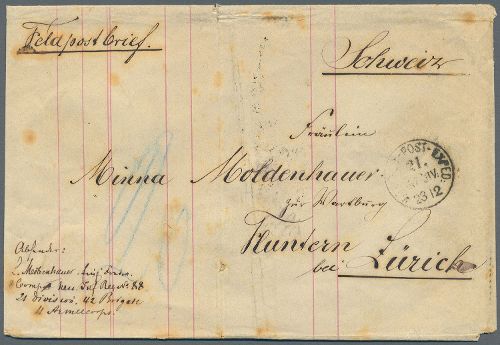 Feldpostbrief.
Schweiz
Fräulein
Minna Moldenhauer
zur Wartburg
Fluntern
bei Zürich
POST-EXPED.
21.
23/12
Absender:
Moldenhauer. Einj. Freiw.
Comp. Inf Reg No 88
21 Division. 42 Brigade
11 Armeecorps.